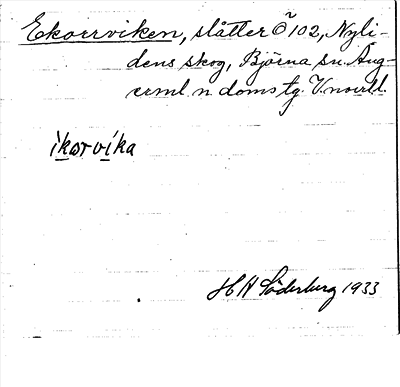 Ekorrviken, slåtter Ö 102, Nyli-
dens skog, Björna sn. Ång-
erml. n doms tg. V.norrl.
ìkorvìka
H A Söderburg 1933